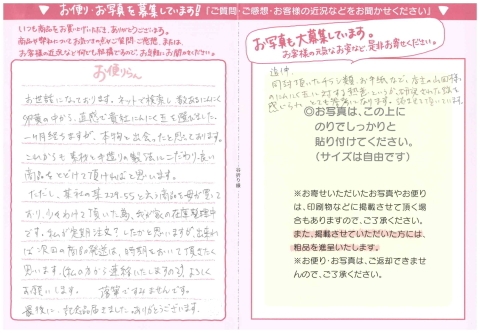 ♥お便り・お写真を募集しています!「ご質問・ご感想・お客様の近況などをお聞かせください」♥
いつも商品をお買い上げいただき、ありがとうございます。
商品や弊社についてお気づきの点やご質問・ご感想、または、
お客様の近況など何でも結構ですので、お気軽にお聞かせください。
お便りらん
お世話になっております。ネットで検索し数あるにんにく
卵黄の中から、直感で貴社にんにく玉を選びました。
一ヶ月経ちますが、本物と出会ったと思しております。
これからも素材と手造りの製法にこだわり良い
商品をとどけて頂ければと思います。
ただし、某社の
商品を母が買って
おり、分けて頂いて
私が定期注文してしたかと思いますが、出来れ
ば次回の商品発送は、時期をおいて頂きたく
思います。(私の方から連絡いたしますので)よろしく
お願いします。 落筆ですみませんです。
最後に、記念品届きました。ありがとうございます。
谷折り線
お写真も大募集しています。
お客様の元気なお姿など、是非お寄せください。
追伸、
同封頂いたチラシ類、お手紙など、店主の山田様
のにんにく玉に対する
とても
◎お写真は、この上に
のりでしっかりと
貼り付けてください。
(サイズは自由です)
※お寄せいただいたお写真やお便り
は、印刷物などに掲載させて頂く場
合もありますので、ご了承ください。
また、掲載させていただいた方には、
粗品を進呈いたします。
※お便り・お写真は、ご返却できませ
んので、ご了承ください。